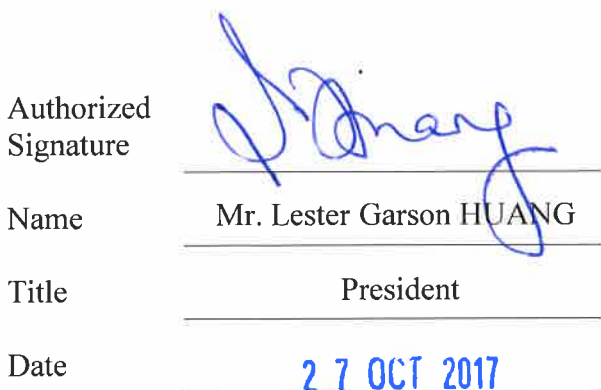 Authorized
Signature
Name Mr. Lester Garson HUANG
Title President
Date 27 OCT 2017